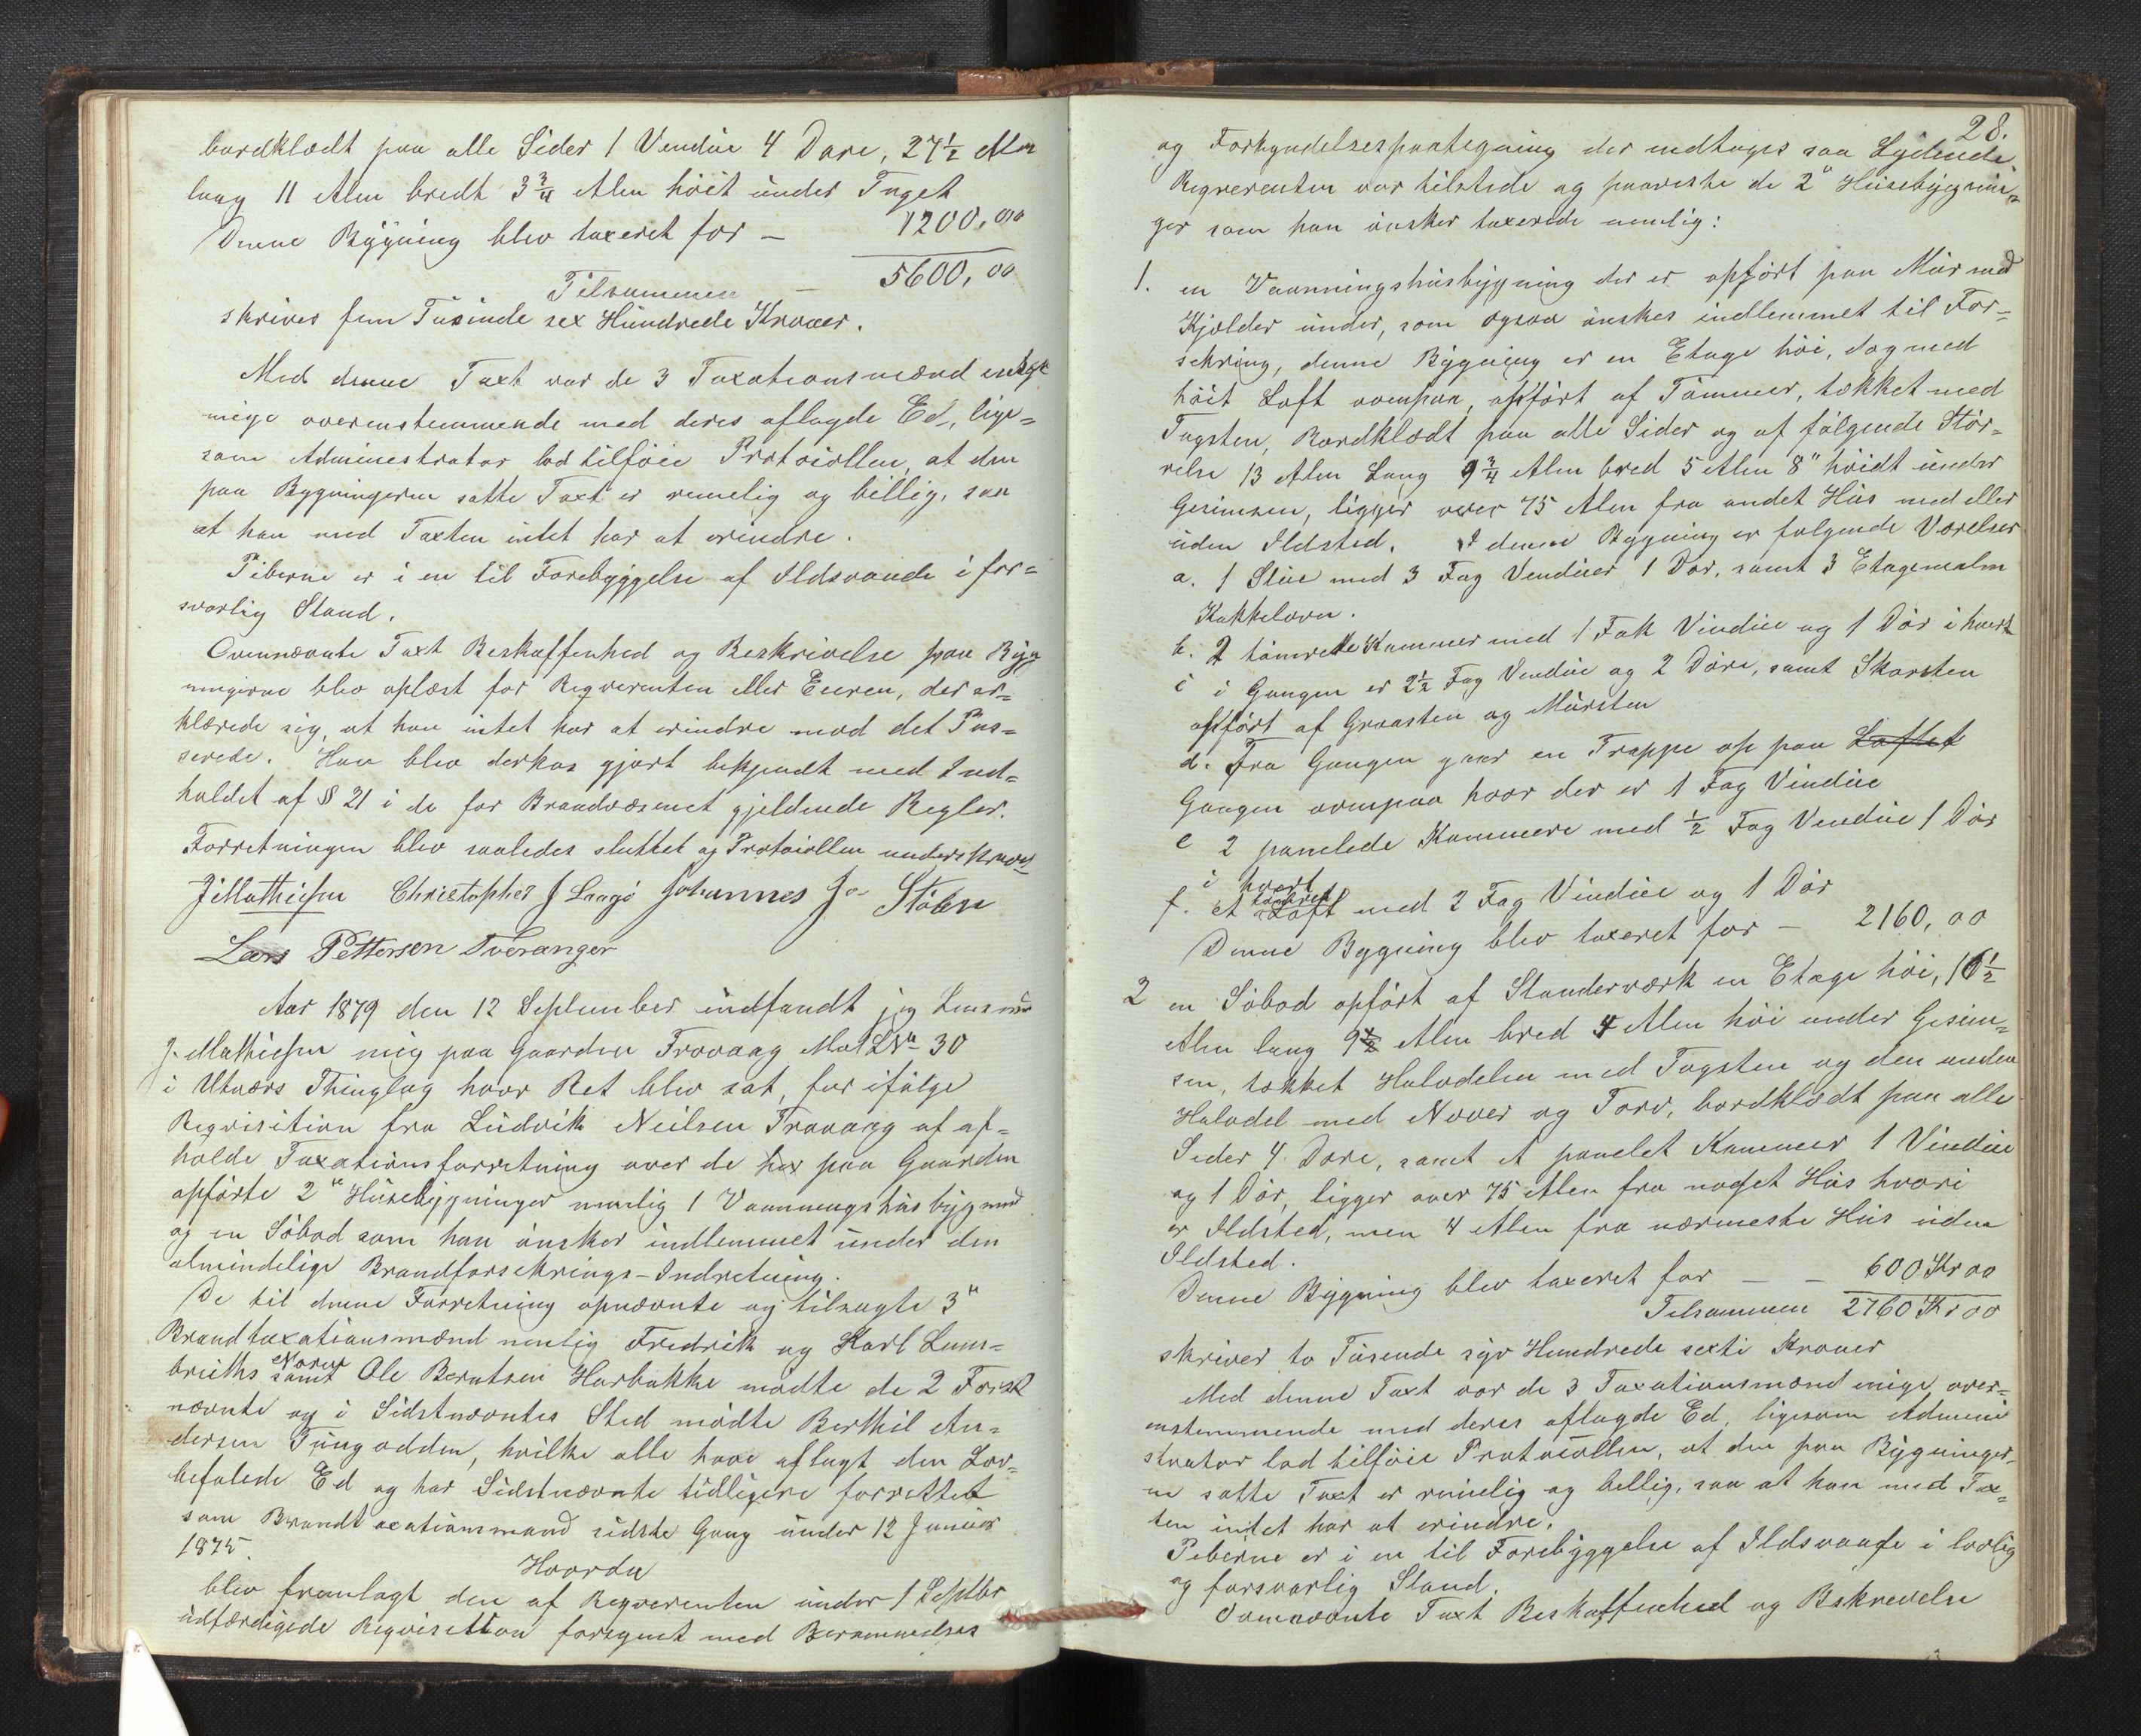 bordklædt paa alle Sider 1 Vendue 4 Dore, 27½ Alen
lang 11 Alen bredt 3¾ Alen höit under Taget
Denne Bygning blev taxeret for – 1200,00
Tilsammen – 5600,00
skrives fem Tusinde sex Hundrede Kroner.
Med denne Taxt var de 3 Taxationsmænd
enige overenstemmende med deres aflagde Ed, lige=
som Administrator lod tilföie Protocollen, at den
paa Bygningerne satte Taxt er remelig og billig, saa
at han med Taxten intet har at erindre.
Piberne er i en til Forebyggelse af Ildsvaade i for=
svarlig Stand.
Ovennævnte Taxt Beskaffenhed og Beskrivelse paa Byg
ningerne blev oplæst for Reqverenten eller Eieren, der er=
klærede sig, at han intet har at erindre mod det Pas=
serede. Han blev derhos gjort bekjendt med Ind=
holdet af § 21 i de for Brandvæsenet gjeldende Regler.
Forretningen blev saaledes sluttet og Protocollen underskrevet
J Mathiesen Christopher J Lrrgö Johannes J Stöben
Lars Pettersen Tveranger
Aar 1879 den 12 September indfandt jeg Lensmd
J. Mathiesen mig paa Gaarden Trovaag Mat L No 30
i Utværs Thinglag hvor Ret blev sat, for ifölge
Reqvisition fra Ludvik Neilsen Trovaag at af=
holde Taxationsforretning over de her paa Gaarden
opförte 2de Husebygninger nemlig 1 Vaaningshusbygnd
og en Söbod som han önsker indlemmet under den
almindelige Brandforsekrings-Indretning.
De til denne Forretning opnævnte og tilsagte 3de
Brandtaxationsmænd nemlig Fredrik og Karl Lem=
briths Nörve samt Ole Berntsen Harbakke mødte de 2 Först
nævnte og i Sidstnævntes Sted mödte Berthil An=
dersen Tungodden, hvilke alle have aflagt den Lov=
befalede Ed og har Sidstnævnte tidligere forrettet
som Brandtaxationsmand sidste Gang under 12 Januar
1875.
Hvorda
blev fremlagt den af Reqverenten under 1 Septbr
udfærdigede Reqvisition forsynet med Berammelses
28.
og Forkyndelsespaategning der indtages saa Lydende
Reqverenten var tilstede og paaviste de 2de Husebygnin=
ger som han önsker taxerede nemlig:
1. en Vaanningshusbygning der er opfört paa Mur med
Kjelder under, som ogsaa önskes indlemmet til For=
sekring, denne Bygning er en Etage höi, dog med
höit Loft ovenpaa, opfört af Tömmer, tækket med
Tagsten, Bordklædt paa alle Sider og af fölgende Stör=
relse 13 Alen Lang 9¾ Alen bred 5 Alen 8" höidt under
Gesimsen, ligger over 75 Alen fra andet Hus med eller
uden Ildsted. I denne Bygning er folgende Værelser
a. 1 Stue med 3 Fag Venduer 1 Dör, samt 3 Etages malm
Kakkelovn.
b. 2 tömrede Kammer med 1 Fak Vindue og 1 Dör i hvert
c i Gangen er 2½ Fag Vendue og 2 Döre, samt Skorsten
opfört af Graasten og Mursten
d. Fra Gangen gaar en Trappe op paa Loftet
Gangen ovenpaa hvor der er 1 Fag Vindue
e 2 panelede Kammere med ½ Fag Vendue 1 Dör
i hvert
f. et tömret Loft med 2 Fag Vindue og 1 Dör
Denne Bygning blev taxeret for – 2160,00
2 en Söbod opfört af Standerværk en Etage höi, 16½
Alen lang 9½ Alen bred 4 Alen höi under Gesim=
sen, tækket Halvdelen med Tagsten og den anden
Halvdel med Næver og Torv, bordklædt paa alle
Seder 4 Döre, samt et panelet Kammer 1 Vindue
og 1 Dör, ligger over 75 Alen fra noget Hus hvori
er Ildsted, men 4 Alen fra nærmeste Hus uden
Ildsted.
Denne Bygning blev taxeret for – – 600 Kr 00
Tilsammen 2760 Kr 00
skriver to Tusende syv Hundrede sexti Kroner
Med denne Taxt var de 3 Taxationsmænd enige, over=
enstemmende med deres aflagde Ed, ligesom Admini
strator lod tilföie Protocollen, at den paa Bygninger=
ne satte Taxt er rimelig og billig, saa at han med Tax=
ten intet har at erindre.
Peberne er i en til Forebyggelse af Ildsvaade i lovlig
og forsvarlig Stand.
Ovennævnte Taxt Beskaffenhed og Beskrevelse